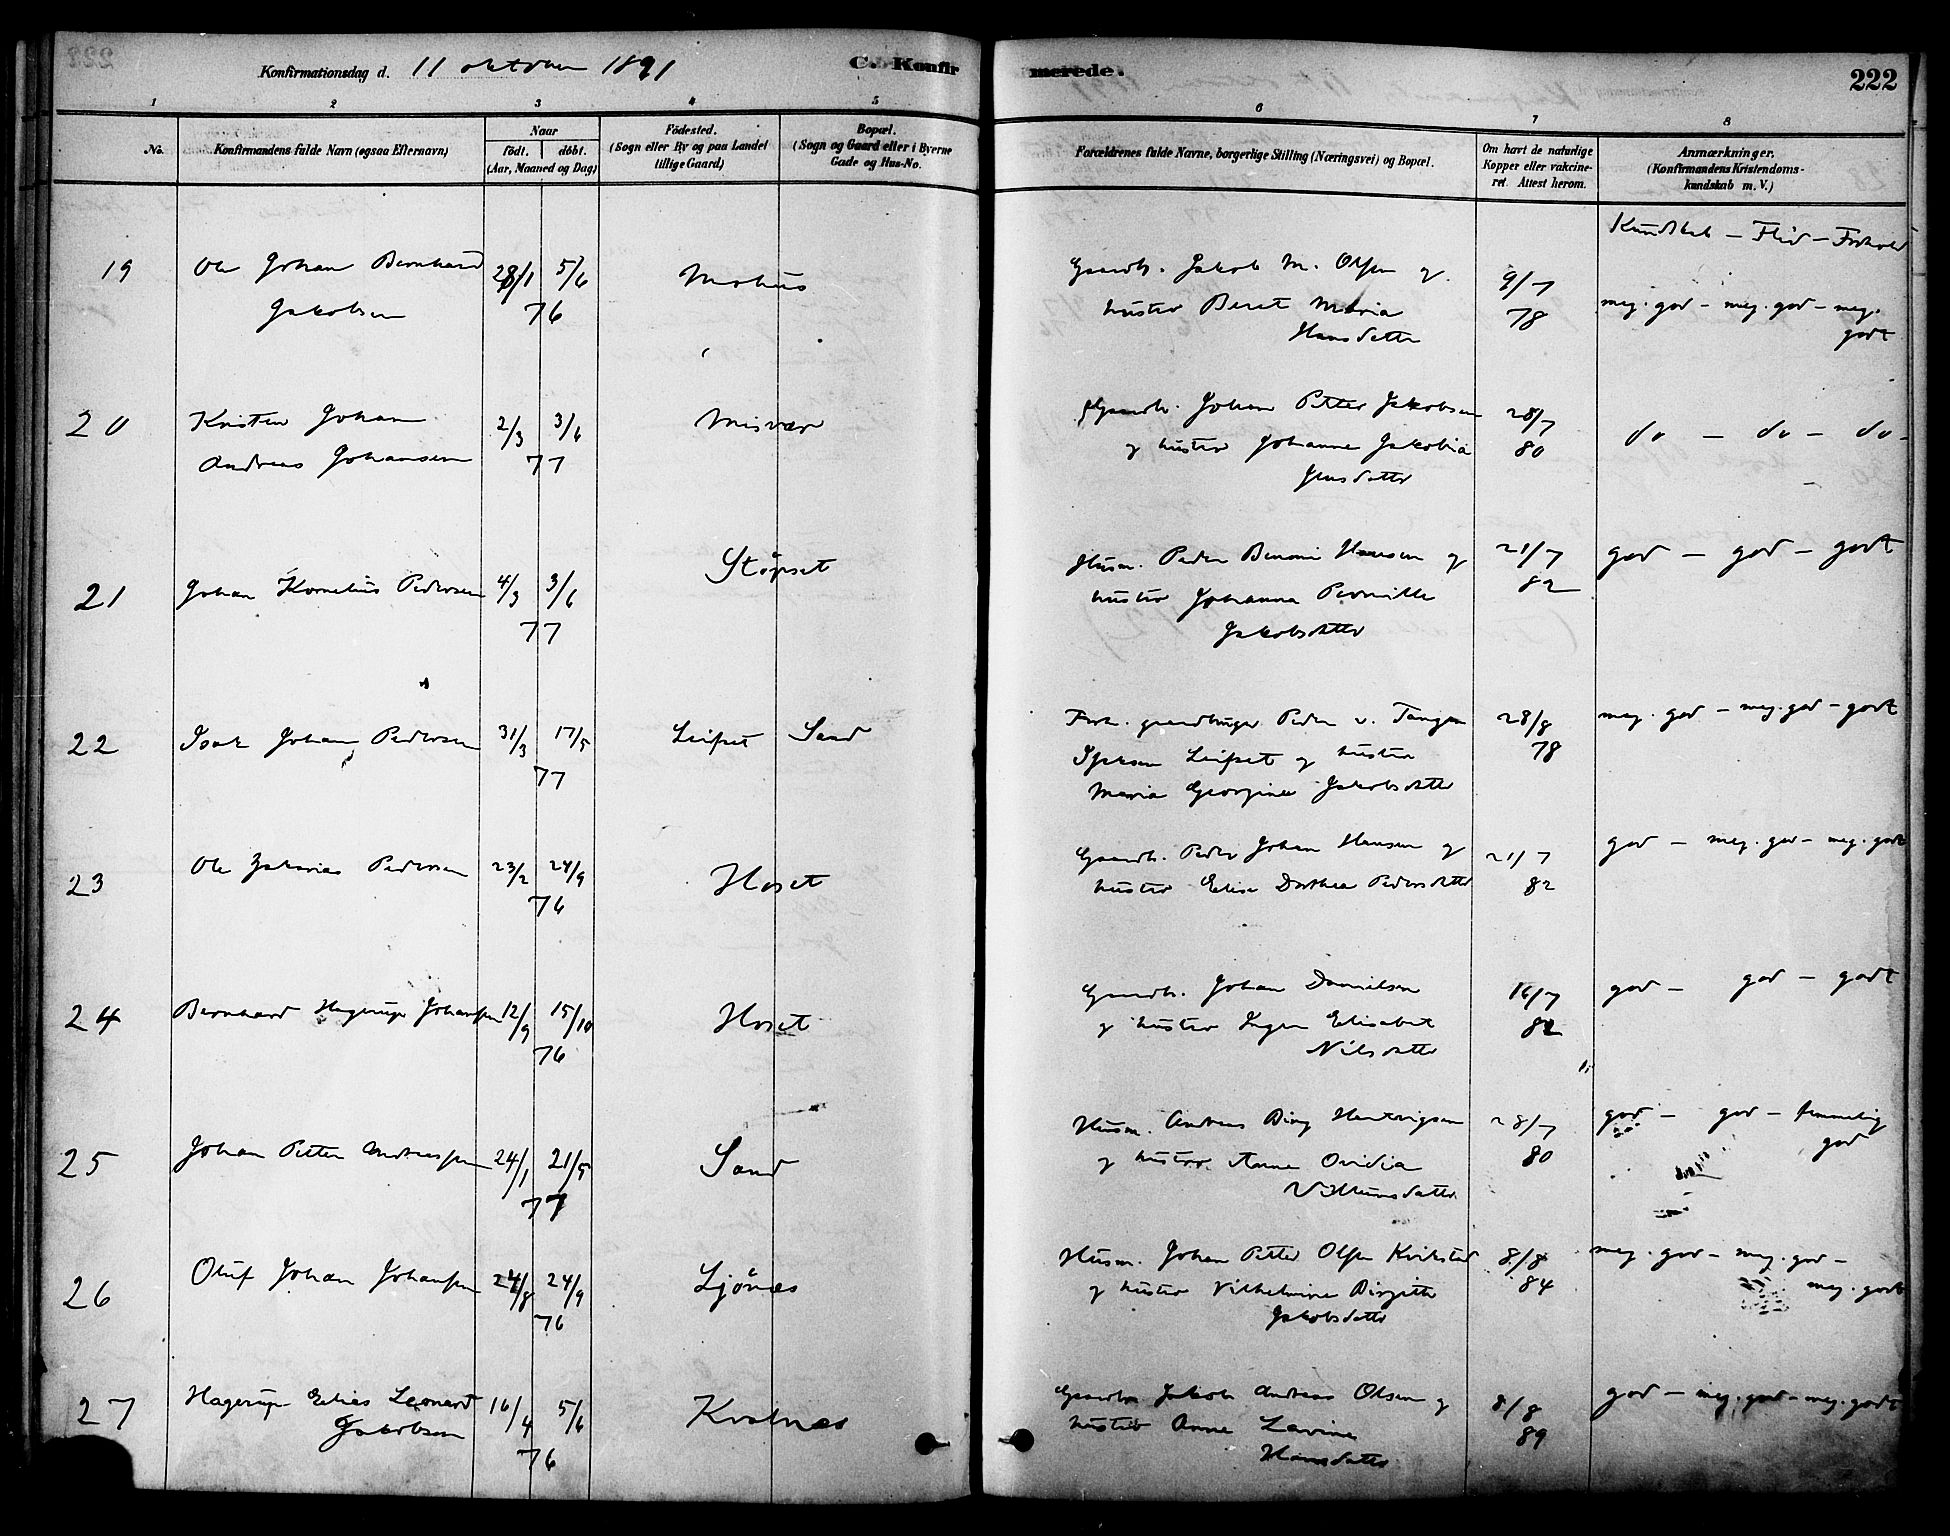 Konfirmationsdag d. 11 oktober 1891
C. Konfirmerede.
222
1 2 3 4 5 6 7 8
No.
Konfirmandens fulde Navn (ogsaa Efternavn)
Naar
födt. döbt.
(Aar, Maaned og Dag)
Födested.
(Sogn eller By og paa Landet
tillige Gaard)
Bopæl.
(Sogn og Gaard eller i Byerne
Gade og Hus-No.
Forældrenes fulde Navne, borgerlige Stilling (Næringsvei) og Bopæl.
Om havt de naturlige
Kopper eller vakcine-
ret. Attest herom.
Anmærkninger.
(Konfirmandens Kristendoms-
kundskab m. V.)
Kundskab - Flid - Forhold
19 Ole Johan Bernhard
Jakobsen
28/1 5/6
76
Mohus
Gaardb. Jakob M. Olsen og
hustru Beret Maria
Hansdatter
9/7
78
meg. god - meg. god - meg.
godt
20 Kristen Johan
Andreas Johansen
2/3 3/6
77
Misvær
Gaardb. Johan Petter Jakobsen
og hustru Johanne Jakobia
Jensdatter
28/7
80
do - do - do -
21 Johan Kornelius Pedersen
4/3 3/6
77
Störset
Husm. Peder Benoni Hansen og
hustru Johanna Pernille
Jakobsdatter
21/7
82
god - god - godt
22 Isak Johan Pedersen
31/3 17/5
77
Leifset Sand
Forh. gaardbruger Peder v. Tangen
Isaksen Leifset og hustru
Maria Georgine Jakobsdatter
28/8
78
meg. god - meg. god - godt
23 Ole Zakarias Pedersen
23/2 24/9
76
Hoset
Gaardb. Peder Johan Hansen og
hustru Elise Dorthea Pedersdatter
21/7
82
god - meg. god - meg. godt
24 Bernhard Hagerup Johansen
12/9 15/10
76
Hoset
Gaardb. Johan Danielsen
og hustru Inger Elisabet
Nilsdatter
16/7
82
god - god - godt
25 Johan Petter Andreassen
24/1 21/5
77
Sand
Husm. Andreas Bing Hentrigsen
og hustru Anne Ovidia
Villumsdatter
28/7
80
god - god - temmelig
god
26 Oluf Johan Johansen
24/8 24/9
76
Ljönes
Husm. Johan Petter Olsen Kvikstad
og hustru Vilhelmine Birgitte
Jakobsdatter
8/8
84
meg. god - meg. god -
meg. godt
27 Hagerup Elias Leonard
Jakobsen
16/4 5/6
76
Kvalnes
Gaardb. Jakob Andreas Olsen og
hustru Anne Lavine
Hansdatter
8/8
89
god - meg. god - meg. godt